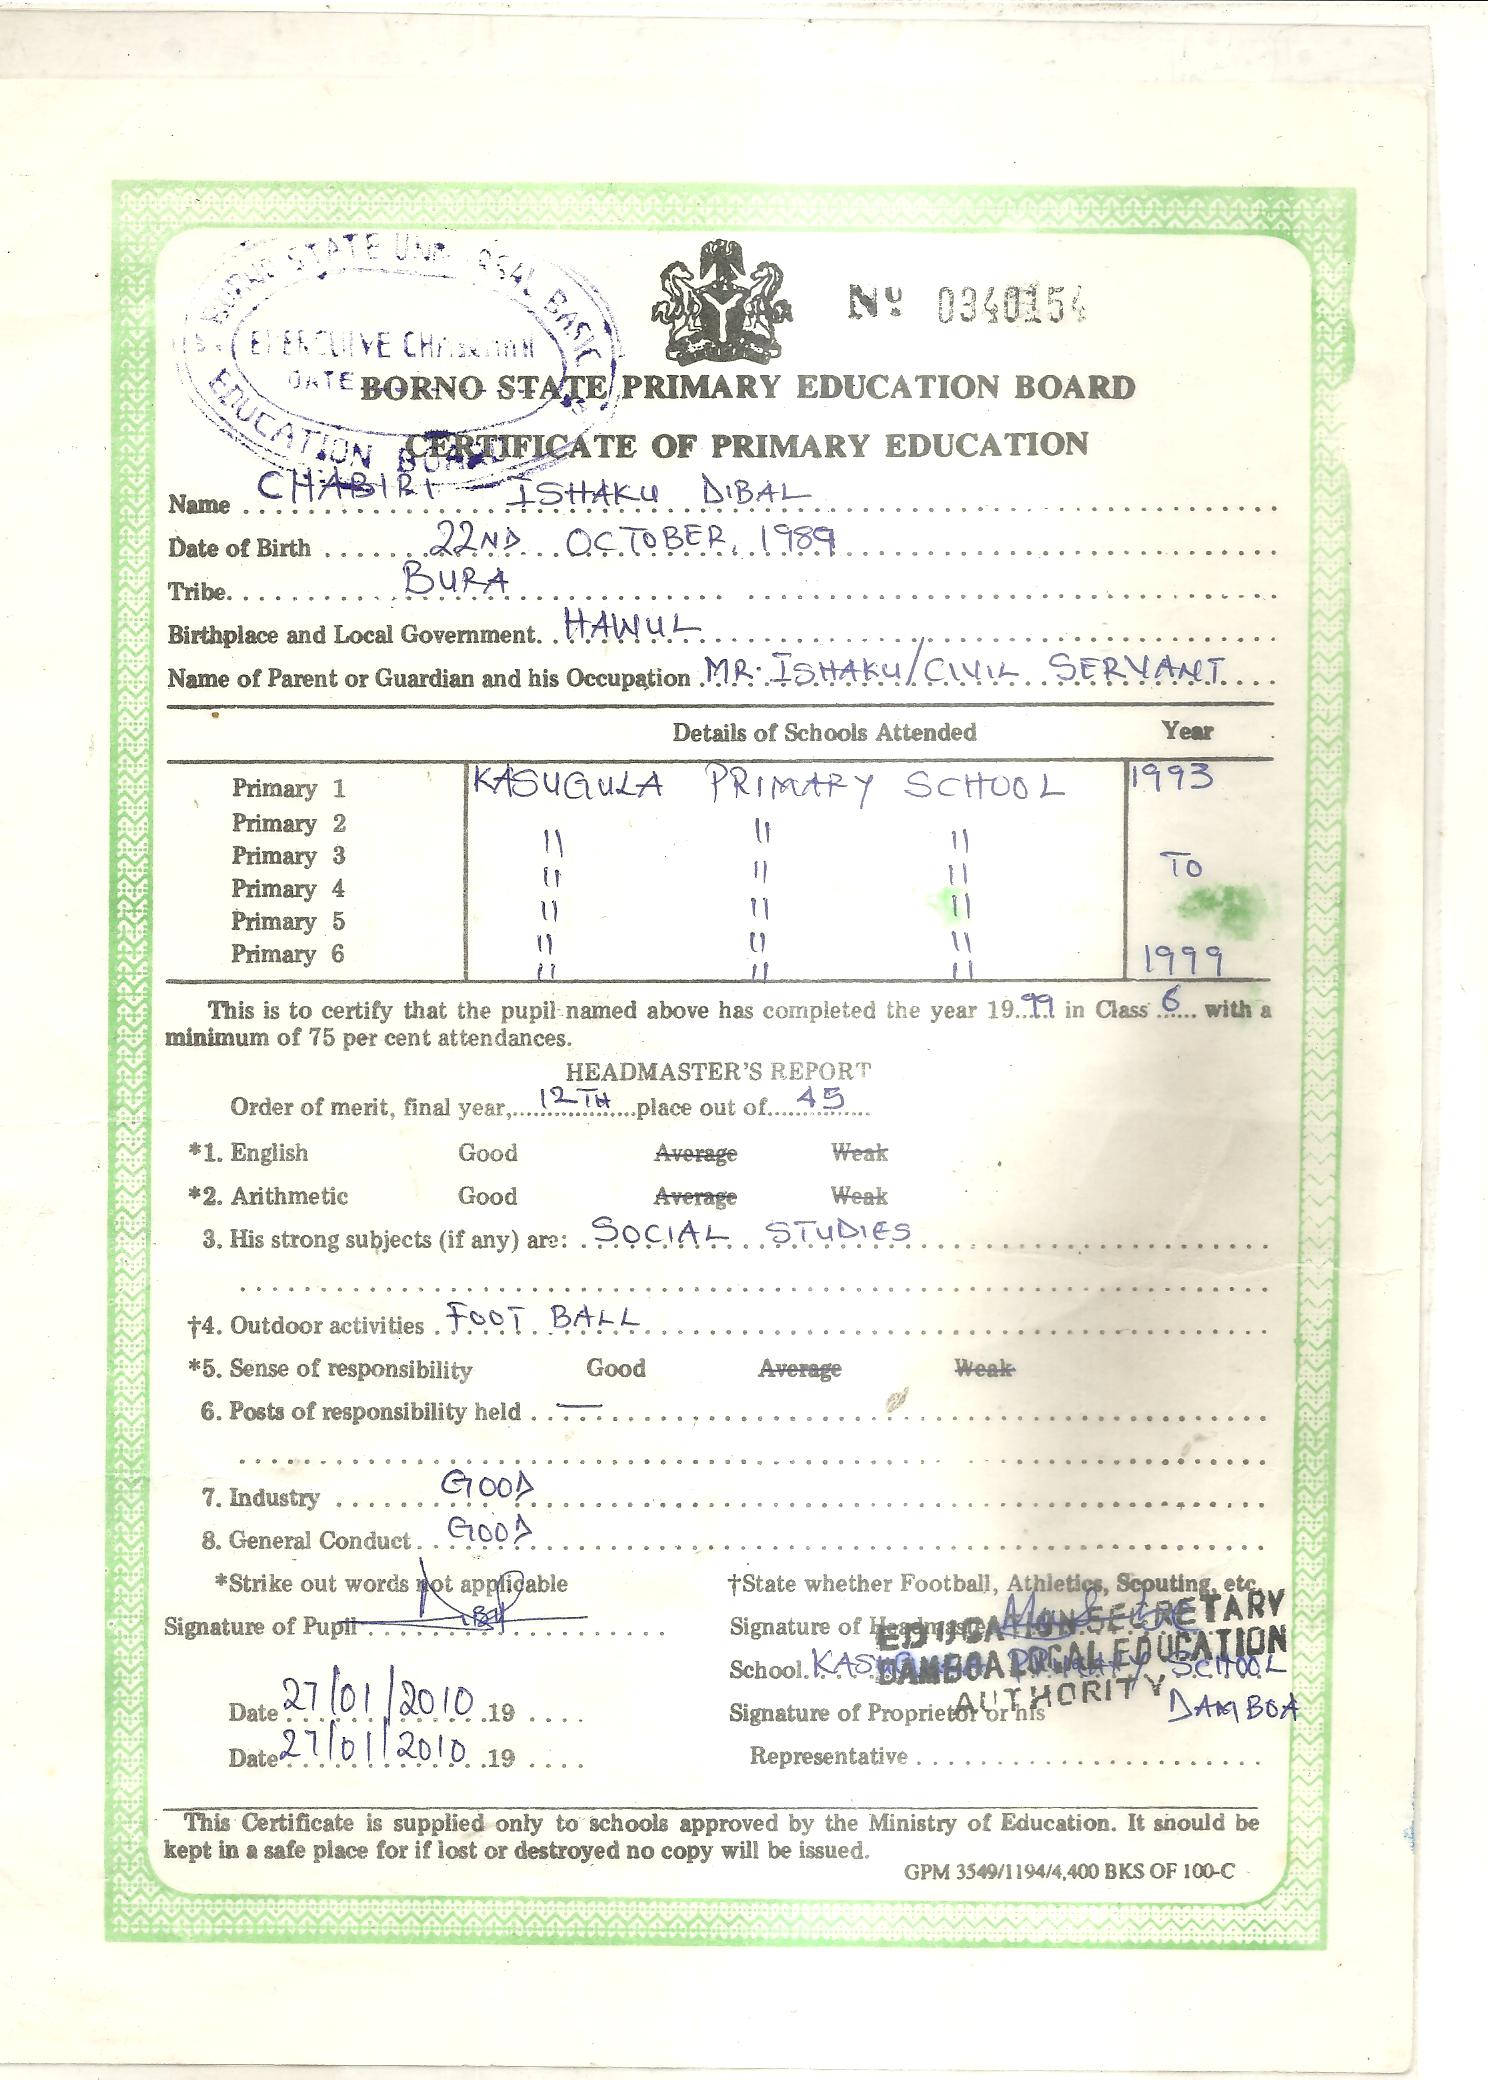 BORNO STATE UNIVERSAL BASIC
EXECUTIVE CHAIRMAN
DATE
EDUCATION BOARD
No 0340154
BORNO STATE PRIMARY EDUCATION BOARD
CERTIFICATE OF PRIMARY EDUCATION
Name CHABIRI ISHAKU DIBAL
Date of Birth 22ND OCTOBER, 1989
Tribe BURA
Birthplace and Local Government HAWUL
Name of Parent or Guardian and his Occupation MR. ISHAKU/CIVIL SERVANT
Details of Schools Attended Year
Primary 1 KASUGULA PRIMARY SCHOOL 1993
Primary 2 " " "
Primary 3 " " " TO
Primary 4 " " "
Primary 5 " " "
Primary 6 " " " 1999
This is to certify that the pupil named above has completed the year 1999 in Class 6 with a
minimum of 75 per cent attendances.
HEADMASTER'S REPORT
Order of merit, final year, 12TH place out of 45
*1. English Good Average Weak
*2. Arithmetic Good Average Weak
3. His strong subjects (if any) are: SOCIAL STUDIES
†4. Outdoor activities FOOT BALL
*5. Sense of responsibility Good Average Weak
6. Posts of responsibility held —
7. Industry GOOD
8. General Conduct GOOD
*Strike out words not applicable †State whether Football, Athletics, Scouting, etc.
Signature of Pupil Signature of Headmaster
EDUCATION SECRETARY
DAMBOA LOCAL EDUCATION
AUTHORITY
School KASUGULA PRIMARY SCHOOL
DAMBOA
Date 27/01/2010 19 Signature of Proprietor or his
Date 27/01/2010 19 Representative
This Certificate is supplied only to schools approved by the Ministry of Education. It should be
kept in a safe place for if lost or destroyed no copy will be issued.
GPM 3549/1194/4,400 BKS OF 100-C